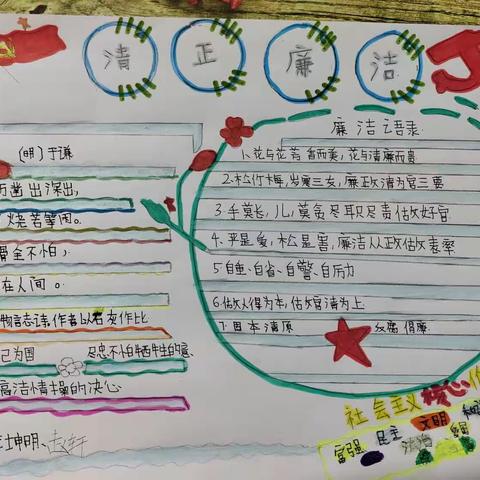 清正廉洁
(明)于谦
万凿出深出,
烧若等闲。
骨全不怕,
在人间。
物言志诗,作者以石灰作比
己为国 尽忠不怕牺牲的意、
高洁情操的决心
廉洁语录
1、花与花芳香而美,花与清廉而贵
2.松竹梅,岁寒三友,廉政清为官三要
3.手莫长,心莫贪尽职尽责做好官
4、平是美,松是富,廉洁从政做表率
5自重、自省、自警、自励
6.做人得为本,做官清为上
7.固本清源 反腐倡廉
社会主义核心价
富强 民主 文明 和谐
法治 爱国
坤明、